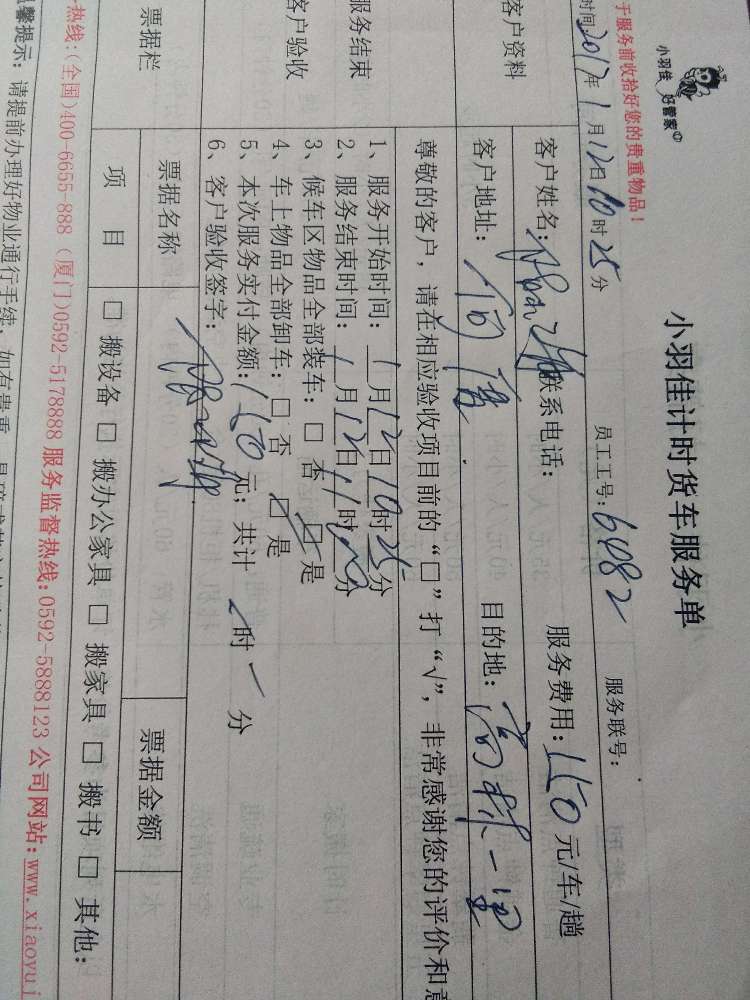 小羽佳 好管家
小羽佳计时货车服务单
于服务前收拾好您的贵重物品！
时间2017年1月12日10时25分 员工工号：6082 服务联号：
客户资料
客户姓名： 联系电话： 服务费用：150元/车/趟
客户地址： 目的地：高林一里
尊敬的客户，请在相应验收项目前的“□”打“√”，非常感谢您的评价和意
服务结束
客户验收
1、服务开始时间：1月12日10时25分
2、服务结束时间：1月12日11时 分
3、候车区物品全部装车：□ 否 □ 是
4、车上物品全部卸车：□ 否 □ 是
5、本次服务实付金额：150元；共计 时 分
6、客户验收签字：
票据栏
票据名称 票据金额
项 目 □ 搬设备 □ 搬办公家具 □ 搬家具 □ 搬书 □ 其他：
热线：(全国)400-6655-888 (厦门)0592-5178888 服务监督热线：0592-5888123 公司网站：www.xiaoyuj
温馨提示：请提前办理好物业通行手续，如有贵重